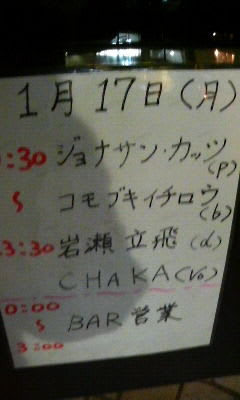 1月17日(月)
:30 ジョナサン・カッツ(p)
S コモブキイチロウ(b)
3:30 岩瀬立飛(d)
CHAKA(Vo)
0:00
S BAR営業
3:00